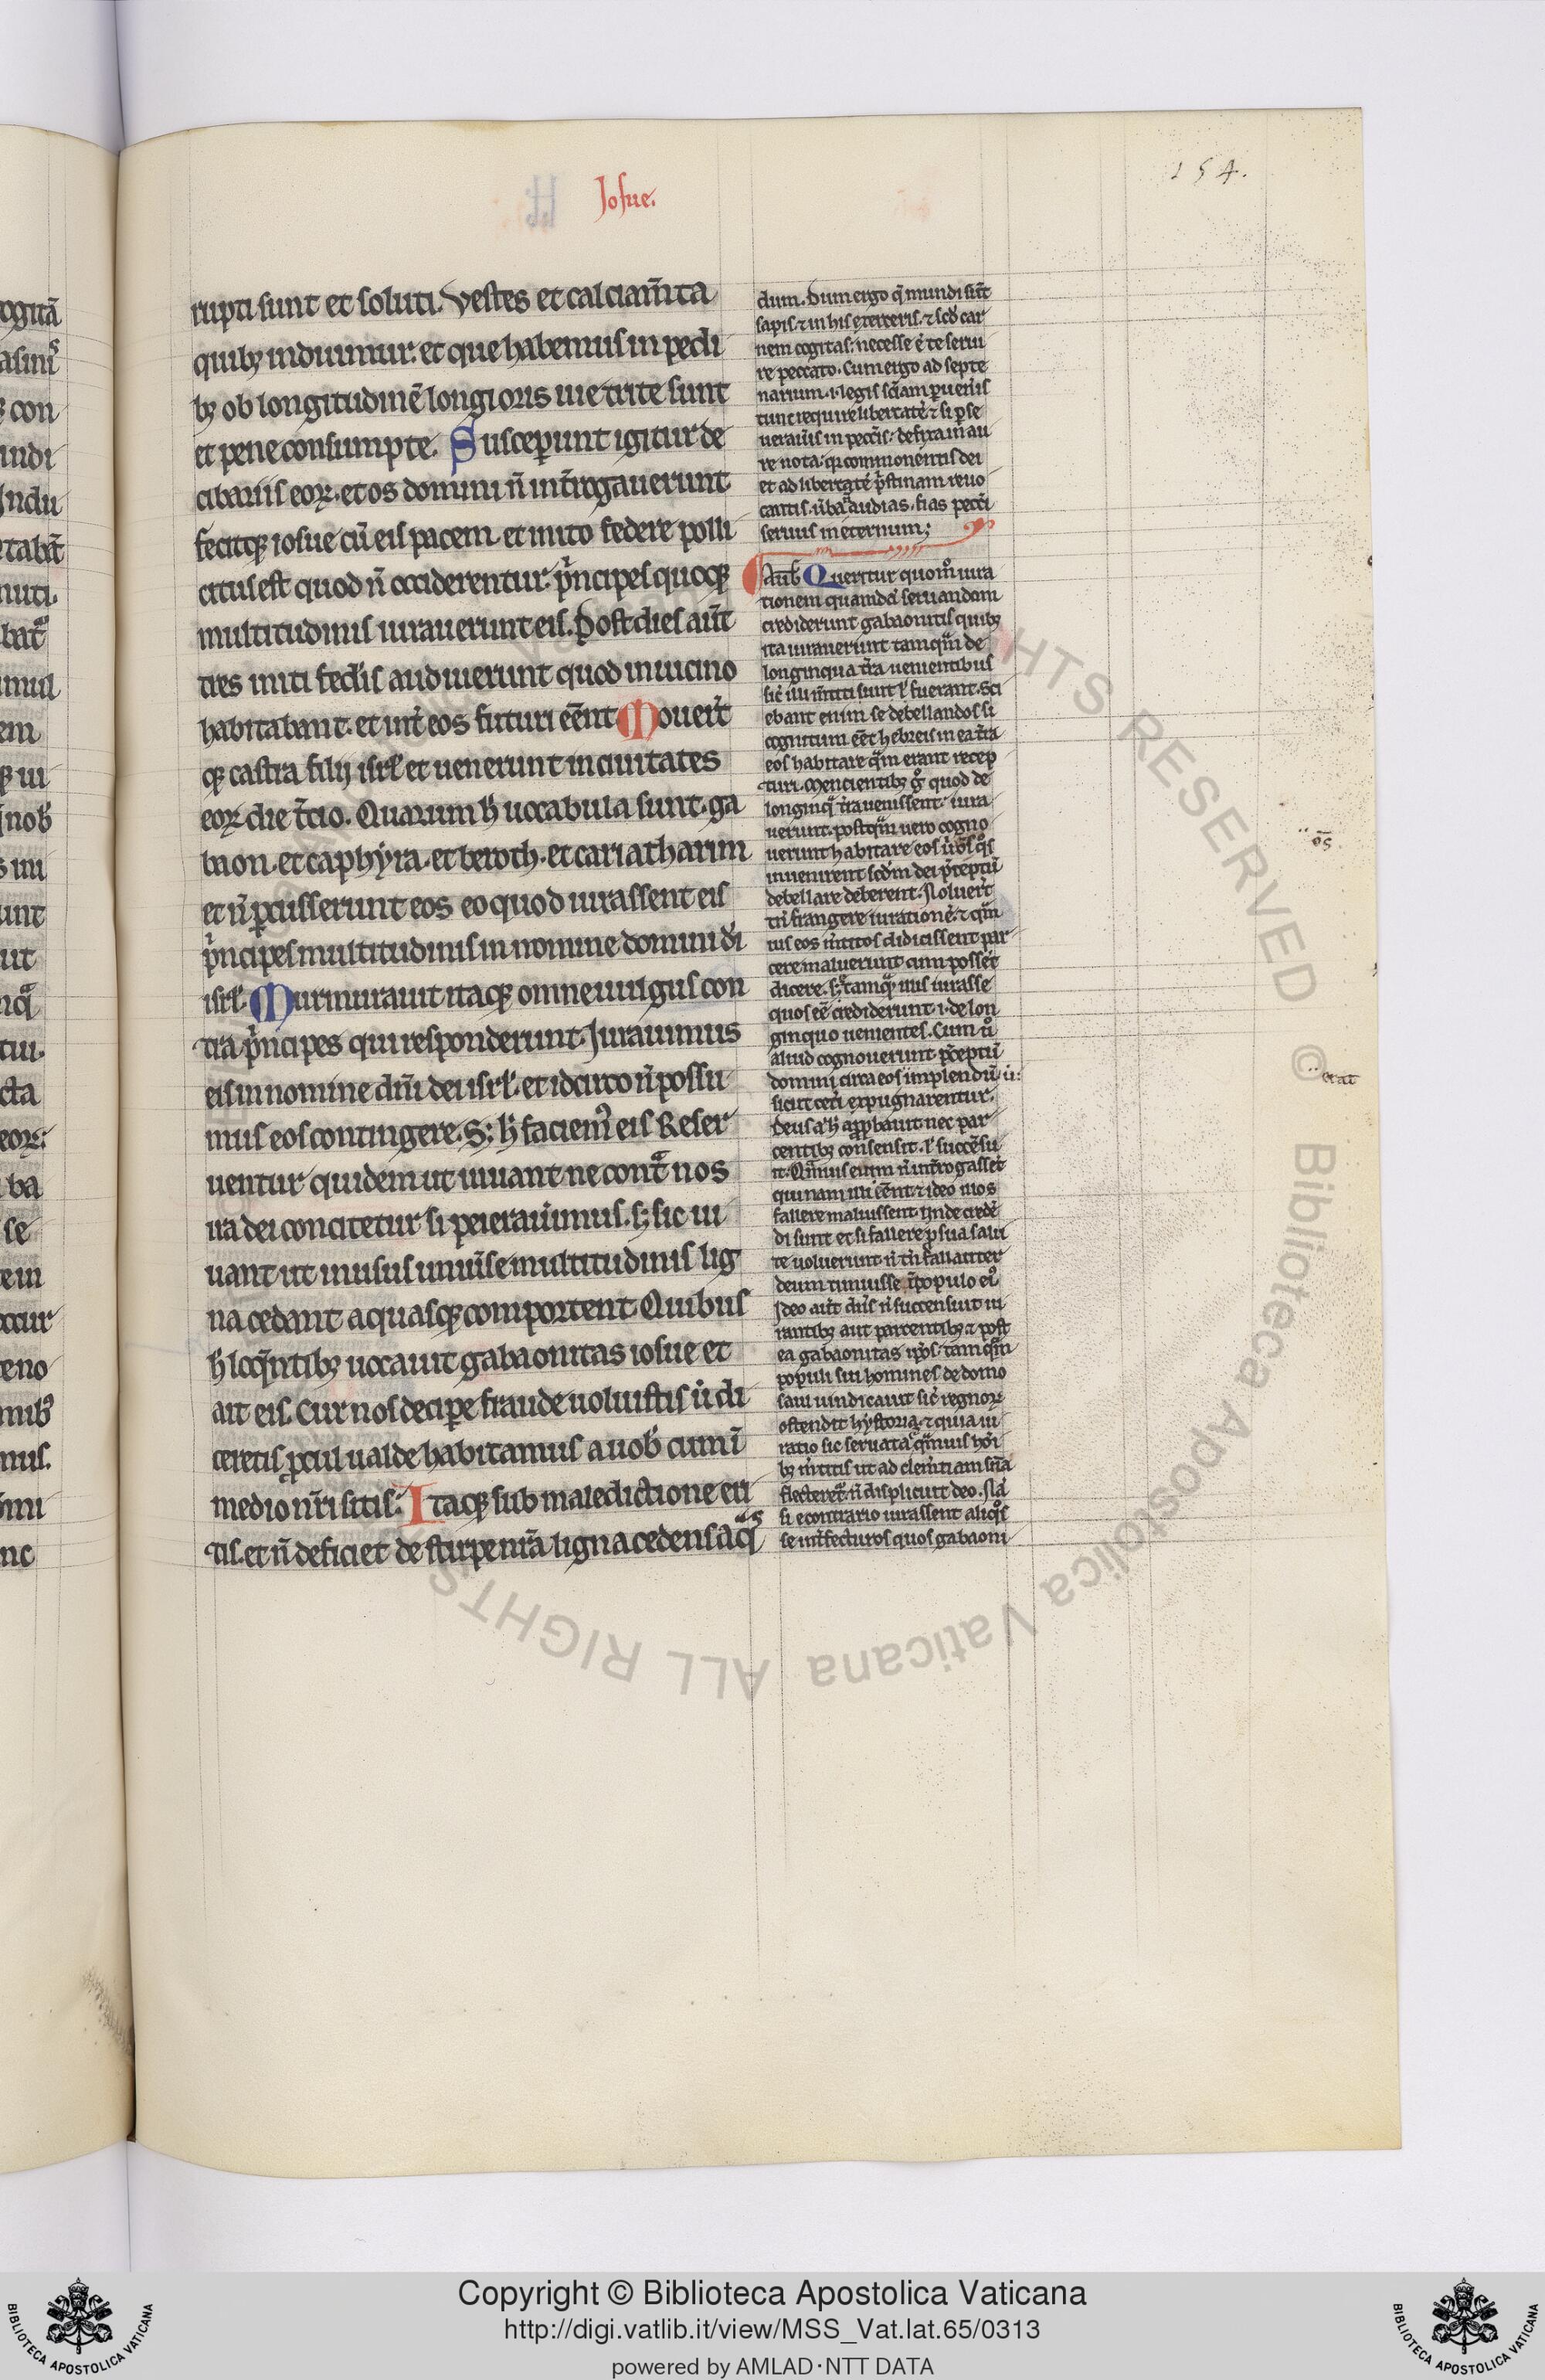 Josue.
154.
rupti sunt et soluti. Vestes et calciam̄ta
quibꝫ induimur: et que habemus in pedi
bꝫ ob longitudinē longioris uie trite sunt
et pene consumpte. Susceperunt igitur de
cibariis eoꝝ. et os domini n̄ int̄rogauerunt
fecitqꝫ iosue cū eis pacem. et inito federe polli
citus est quod n̄ occiderentur. p̄ncipes quoqꝫ
multitudinis iurauerunt eis. Post dies aūt
tres initi fed̄is audiuerunt quod in uicino
habitabant. et int̄ eos futuri eēnt Mouer̄t
qꝫ castra filij isrl̄ et uenerunt in ciuitates
eoꝝ die t̄cio. Quarum h̄ uocabula sunt. ga
baon. et caphyra. et beroth. et cariathiarim
et n̄ ꝑcusserunt eos eo quod iurassent eis
p̄ncipes multitudinis in nomine domini dī
isrl̄. Murmurauit itaqꝫ omne uulgus con
tra p̄ncipes qui responderunt. Jurauimus
eis in nomine dn̄i dei isrl̄. et idcirco n̄ possu
mus eos contingere. Sꝫ h̄ faciemꝰ eis Reser
uentur quidem ut uiuant ne contᵃ nos
ira dei concitetur si peierauimus. sꝫ sic ui
uant ut in usus uniūse multitudinis lig
na cedant aquasqꝫ comportent. Quibus
h̄ loq̄ntibꝫ uocauit gabaonitas iosue et
ait eis. Cur nos decipe fraude uoluistis ut di
ceretis ꝓcul ualde habitamus a uob̄ cum ī
medio nr̄i sitis. Itaqꝫ sub maledictione eri
tis. et n̄ deficiet de stirpe ur̄a ligna cedens aq̄s
dum. Dum ergo q̄ mundi sūt
sapis. ⁊ in his exerceris. ⁊ scd̄ car
nem cogitas: necesse ē te serui
re peccato. Cum ergo ad septe
narium .i. legis sc̄iam ꝑueneris
tunc require libertatē ⁊ si ꝑse
ueraūis in pecc̄is. defixa in au
re nota: qꝛ commonentis dei
et ad libertatē p̄stinam reuo
cantis. ūba audias. fias pecc̄i
seruus in eternum;
Aub̄ Queritur quomͦ iura
tionem quamdā seruandam
crediderunt gabaonitis quibꝫ
ita iurauerunt tamqͣm de
longinqua t̄ra uenientibus
sic̄ illi m̄titi sunt ł fuerant. Sci
ebant enim se debellandos si
cognitum eēt hebreis in ea t̄ra
eos habitare qͣm erant recep
turi. Mencientibꝫ gͦ quod de
longinqͣ t̄ra uenissent. iura
uerunt. postqͣm uero cogno
uerunt habitare eos
inuenirent scd̄m dei p̄ceptū
debellare deberent. Noluer̄t
tn̄ frangere iurationē. ⁊ qͣm
uis eos m̄titos didicissent par
cere maluerunt cum posset̄
dicere. tamqͣ illis iurasse
quos eē crediderunt .i. de lon
ginquo uenientes. Cum ūͦ
aliud cognouerunt p̄ceptū
domini circa eos implendū
sicut cet̄i expugnarentur.
Deus aū h̄ apꝓbauit nec par
centibꝫ consensit. ł succēsu
it. Qͣmuis enim n̄ int̄rogasset̄
quinam illi eēnt. ⁊ ideo illos
fallere maluissent. Vnde crede
di sunt et si fallere ꝓ sua salu
te uoluerunt n̄ tn̄ fallaciter
deum timuisse ī populo eiꝰ
Ideo aūt dn̄s n̄ succensuit iu
rantibꝫ aut parcentibꝫ. ⁊ post
ea gabaonitas ip̄os. tamqͣm
populi sui homines de domo
saul uindicauit sic̄ regnoꝝ
ostendit hystoria. ⁊ quia iu
ratio sic seruata qͣmuis hoī
bꝫ m̄titis ut ad clem̄tiam sn̄a
flecteretͬ n̄ displicuit deo. Nā
si econtrario iurassent aliqͦs
se int̄fecturos quos gabaoni
Copyright © Biblioteca Apostolica Vaticana
http://digi.vatlib.it/view/MSS_Vat.lat.65/0313
powered by AMLAD·NTT DATA
BIBLIOTECA APOSTOLICA VATICANA
BIBLIOTECA APOSTOLICA VATICANA